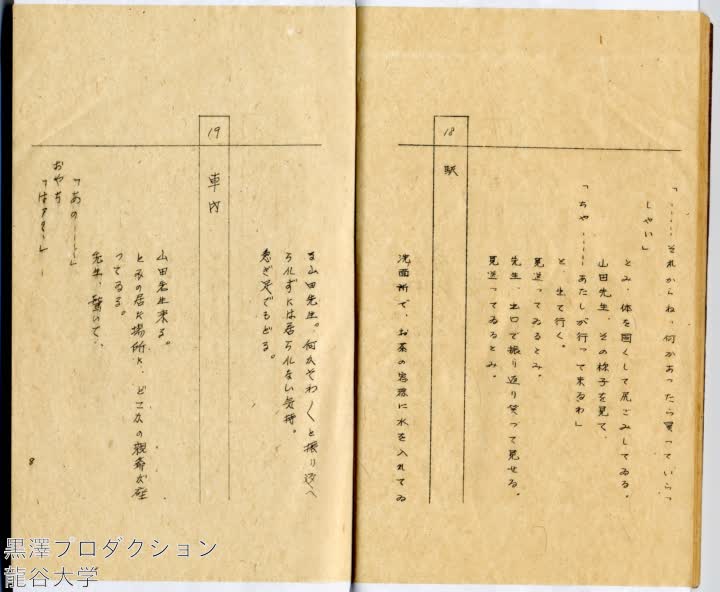 「……それからね、何かあったら買っていらっ
しやい」
とみ、体を固くして尻ごみしてゐる。
山田先生、その様子を見て、
「ぢや……あたしが行って来るわ」
と、立て行く。
見送ってゐるとみ。
先生、出口で振り返り笑って見せる。
見送ってゐるとみ。
18
駅
洗面所で、お茶の容器に水を入れてゐ
る山田先生。何かそわ〱と振り返へ
らずには居られない気持。
急ぎ足でもどる。
19
車内
山田先生来る。
とみの居た場所に、どこかの親爺が座
ってゐる。
先生、驚いて、
「あの……」
おやぢ
「はア？」
8
黒澤プロダクション
龍谷大学